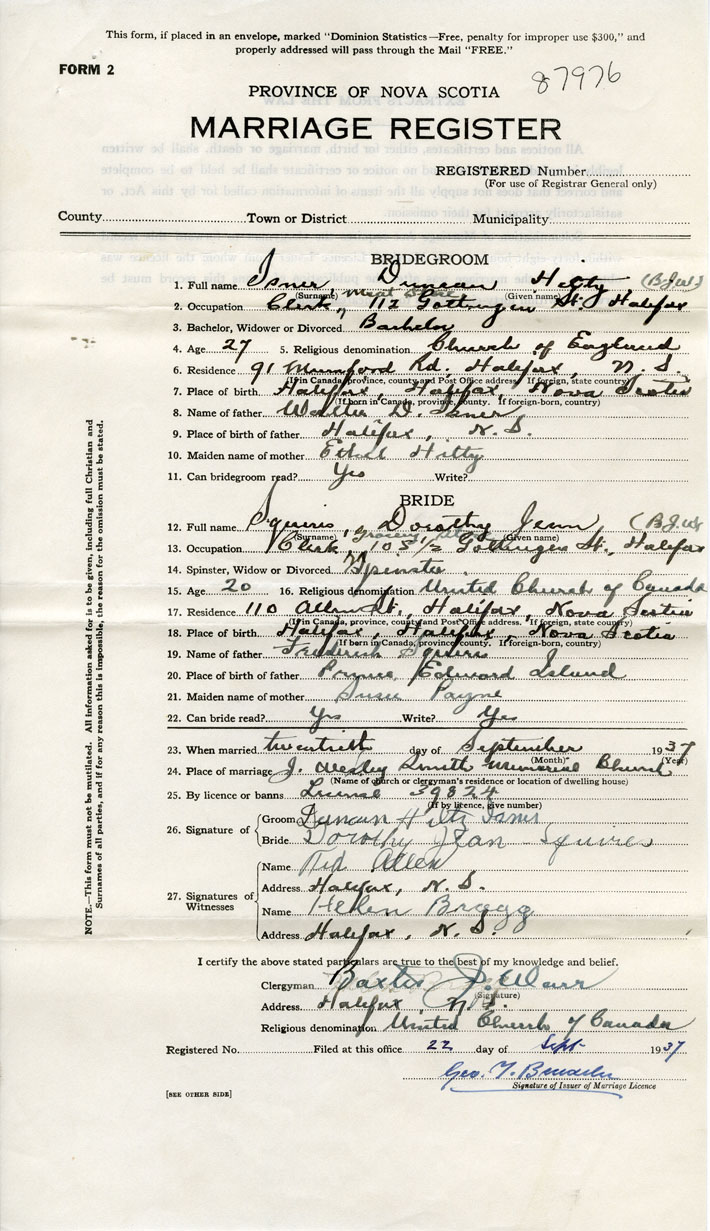 This form, if placed in an envelope, marked "Dominion Statistics—Free, penalty for improper use $300," and
properly addressed will pass through the Mail "FREE."
FORM 2
87976
PROVINCE OF NOVA SCOTIA
MARRIAGE REGISTER
REGISTERED Number
(For use of Registrar General only)
County Town or District Municipality
BRIDEGROOM
1. Full name Isner Duncan Hilty (B.J.W.)
(Surname) (Given name)
Meat Store
2. Occupation Clerk, 112 Gottingen St. Halifax
3. Bachelor, Widower or Divorced Bachelor
4. Age 27 5. Religious denomination Church of England
6. Residence 91 Mumford Rd. Halifax, N. S.
(If in Canada, province, county and Post Office address If foreign, state country)
7. Place of birth Halifax, Halifax, Nova Scotia
(If born in Canada, province, county. If foreign-born, country)
8. Name of father Walter D. Isner
9. Place of birth of father Halifax, N. S.
10. Maiden name of mother Ethel Hilty
11. Can bridegroom read? Yes Write?
BRIDE
12. Full name Squires, Dorothy Jean, (B.J.W.
(Surname) (Given name)
Grocery
13. Occupation Clerk, 105 1/2 Gottingen St., Halifax
14. Spinster, Widow or Divorced Spinster
15. Age 20 16. Religious denomination United Church of Canada
17. Residence 110 Allen St., Halifax, Nova Scotia
(If in Canada, province, county and Post Office address. If foreign, state country)
18. Place of birth Halifax, Halifax, Nova Scotia
(If born in Canada, province, county. If foreign-born, country)
19. Name of father Frederick Squires
20. Place of birth of father Prince Edward Island
21. Maiden name of mother Susie Payne
22. Can bride read? Yes Write? Yes
23. When married twentieth day of September 1937
(Month) (Year)
24. Place of marriage J. Wesley Smith Memorial Church
(Name of church or clergyman's residence or location of dwelling house)
25. By licence or banns License 39824
(If by licence, give number)
26. Signature of
Groom Duncan Hilty Isner
Bride Dorothy Jean Squires
27. Signatures of Witnesses
Name Allen
Address Halifax, N. S.
Name Helen Bragg
Address Halifax, N. S.
I certify the above stated particulars are true to the best of my knowledge and belief.
Clergyman Baxter J. Warr
(Signature)
Address Halifax, N. S.
Religious denomination United Church of Canada
Registered No. Filed at this office 22 day of Sept 1937
Geo. T.
Signature of Issuer of Marriage Licence
[SEE OTHER SIDE]
NOTE.—This form must not be mutilated. All information asked for is to be given, including full Christian and
Surnames of all parties, and if for any reason this is impossible, the reason for the omission must be stated.